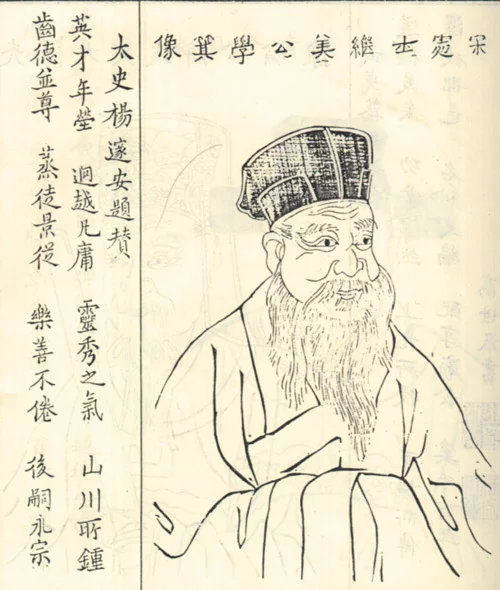 宋處士繼美公學箕像
太史楊邃安題贊
英才年瑩 迥越凡庸 靈秀之氣 山川所鍾
齒德並尊 蒸徒景從 樂善不倦 後嗣永宗